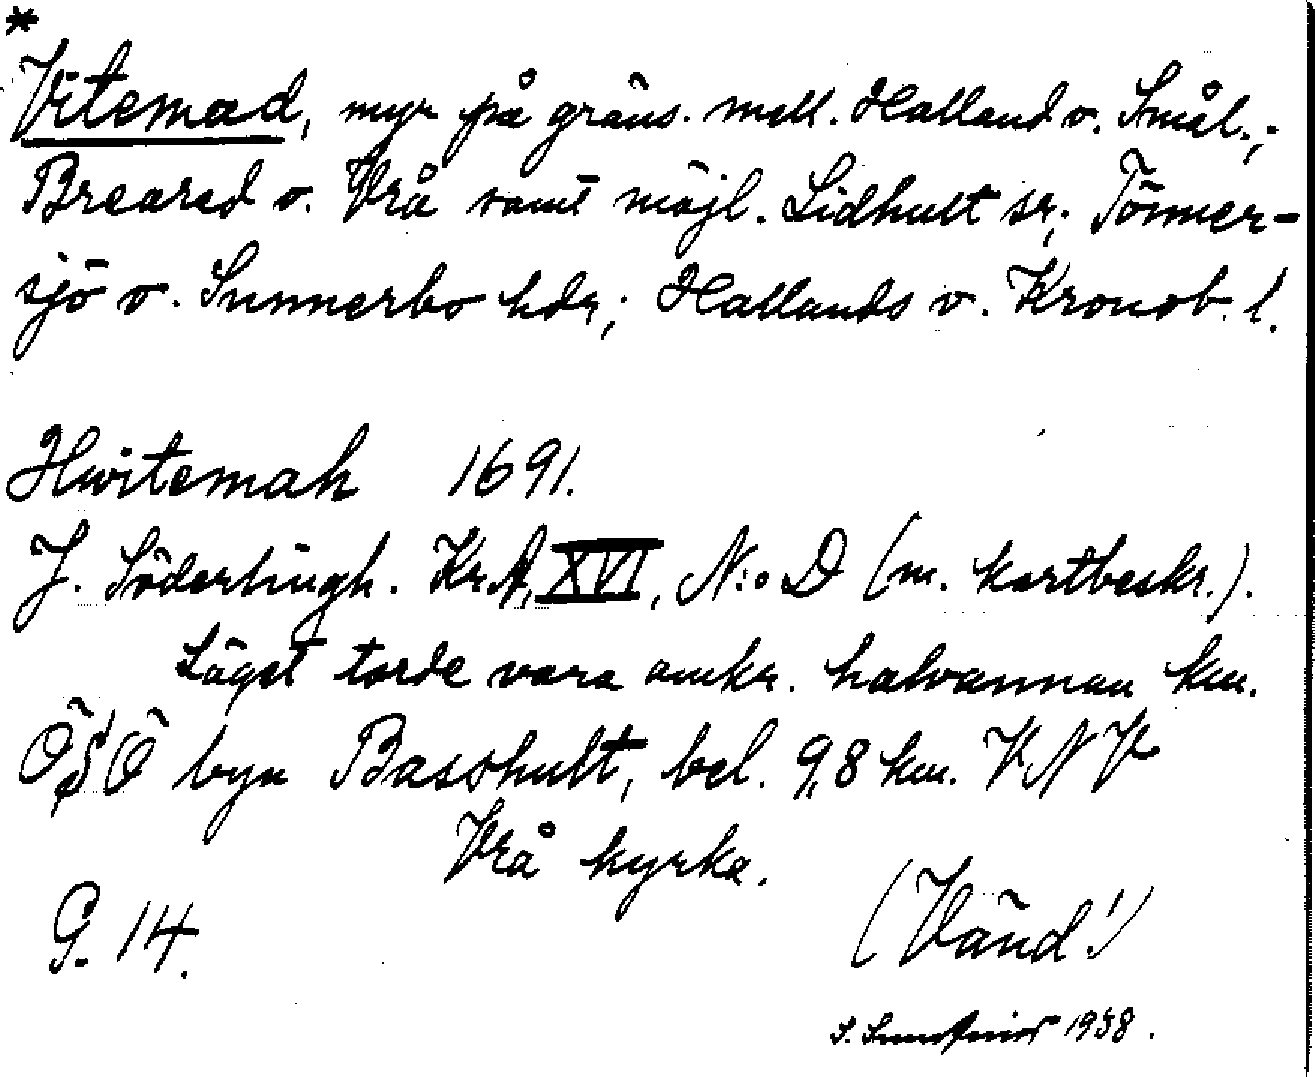 *
Vitemad, myr på gräns. mell. Halland o. Smål.;
Breared o. Vrå samt möjl. Lidhult sr; Tönner-
sjö o. Sunnerbo hdr; Hallands o. Kronob. l.
Hwitemah 1691.
J. Söderlingh. Kr.A, XVI, N:o D (m. kartbeskr.).
Läget torde vara omkr. halvannan km.
ÖSÖ byn Basshult, bel. 9,8 km. VNV
Vrå kyrka.
G. 14.
(Vänd!)
S. 1938.